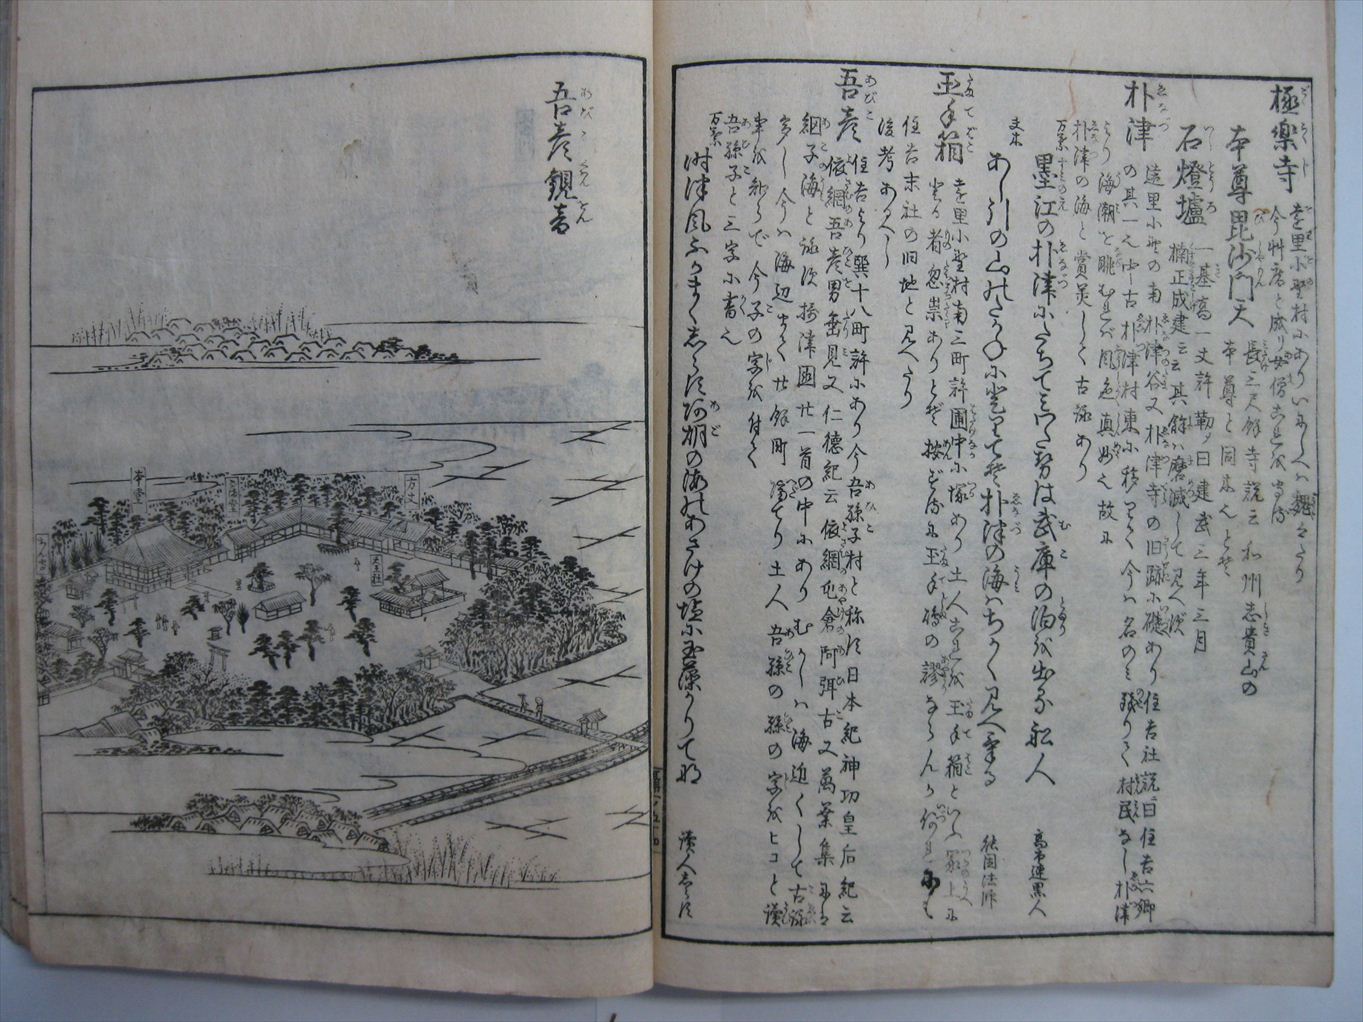 極楽寺 遠里小野村にありいにしへは
今艸庵と成り女僧これを守る
本尊毘沙門天 長三尺餘寺説云和州志貴山の
本尊と同木とぞ
石燈爐 一基高一丈許勒曰建武三年三月
楠正成建云云其餘ハ磨滅して見へず
朴津 遠里小野の南朴津谷又朴津寺の旧跡に礎あり住吉社説ニ曰住吉六郷
の其一也中古朴津村東に移りて今ハ名のミ残りて村民なし朴津
より海潮を眺むれバ風色真妙也故に
朴津の海と賞美して古詠あり
万葉 墨江の朴津にたちて見わたせば武庫の泊を出る舩人 高市連黒人
夫木 あし引の山のたかねに登りてぞ朴津の海ハちかく見へける 法師
玉手箱 遠里小野村南三町許圃中に塚あり土人これを玉手箱といふ塚上に
登る者忽祟ありとぞ按ずるに玉手嶋の謬ならんか何れにも
住吉末社の旧地と見へたり
後考あるべし
吾彦 住吉より巽十八町許にあり今吾孫子村と称す日本紀神功皇后紀云
依網吾彦男垂見又仁徳紀云依網屯倉阿弭古又萬葉集にハ
網子海と詠ず摂津國廿一首の中にありむかしハ海近くして古詠
多し今ハ海辺まで廿餘町隔たり土人吾孫の孫の字をヒコと讀
事を知らで今子の字を付て
吾孫子と三字に書也
万葉 時津風ふかまくしらず阿胡の海のあさけの塩に玉藻かりてな 讀人しらず
吾彦観音
本堂
方丈
天王社